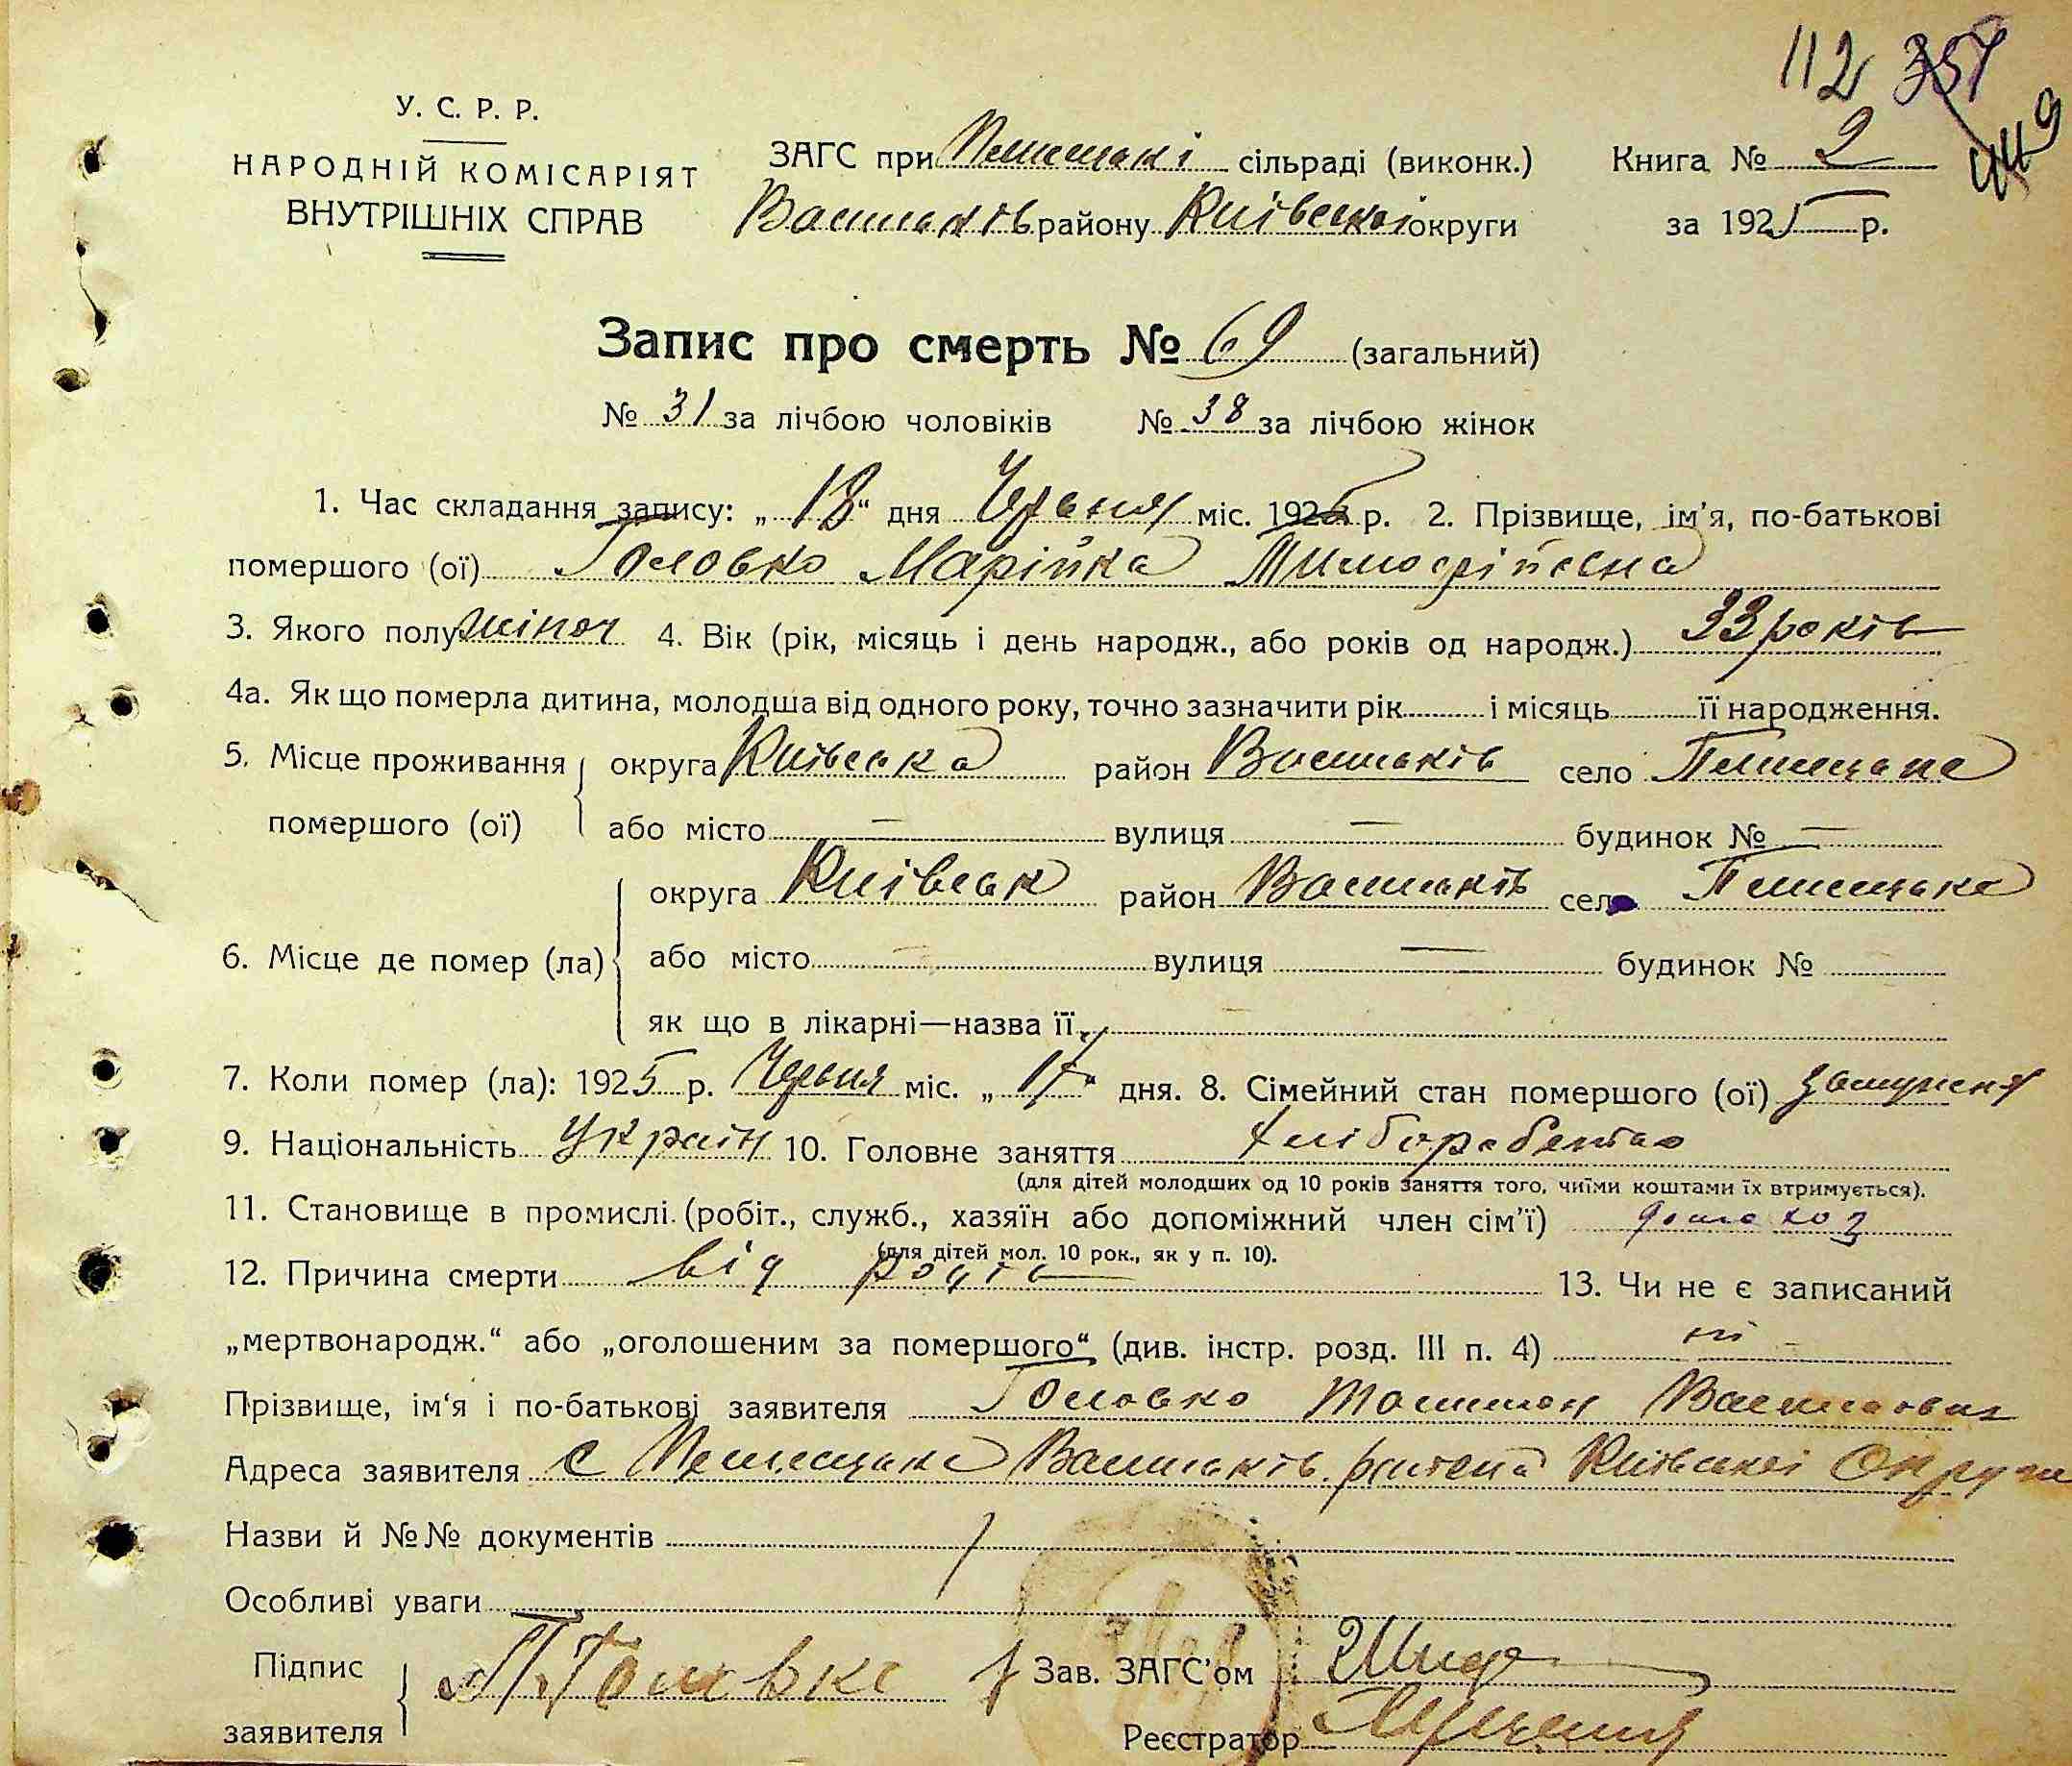 112 357
449
У. С. Р. Р.
НАРОДНІЙ КОМІСАРІЯТ
ВНУТРІШНІХ СПРАВ
ЗАГС при Плисецькі сільраді (виконк.)
Васильків району Київської округи
Книга № 2
за 1925 р.
Запис про смерть № 69 (загальний)
№ 31 за лічбою чоловіків № 38 за лічбою жінок
1. Час складання запису: „18“ дня Червня міс. 1925 р. 2. Прізвище, ім’я, по-батькові
помершого (ої) Головко Марійка Тимофіївна
3. Якого полу жіноч 4. Вік (рік, місяць і день народж., або років од народж.) 33 років
4а. Як що померла дитина, молодша від одного року, точно зазначити рік і місяць її народження.
5. Місце проживання округа Київська район Васильків село Плисецьке
помершого (ої) або місто — вулиця — будинок № —
округа Київськ район Васильків село Плисецьке
6. Місце де помер (ла) або місто — вулиця — будинок №
як що в лікарні—назва її
7. Коли помер (ла): 1925 р. Червня міс. „17“ дня. 8. Сімейний стан помершого (ої) замужня
9. Національність Україн 10. Головне заняття хліборобство
(для дітей молодших од 10 років заняття того, чиїми коштами їх втримується).
11. Становище в промислі (робіт., служб., хазяїн або допоміжний член сім’ї) дома хоз
(для дітей мол. 10 рок., як у п. 10).
12. Причина смерти від родів 13. Чи не є записаний
„мертвонародж.“ або „оголошеним за помершого“ (див. інстр. розд. III п. 4) ні
Прізвище, ім‘я і по-батькові заявителя Головко Василь<br>
Адреса заявителя с Плисецьке Васильків. району Київської Округи
Назви й №№ документів
Особливі уваги
Підпис
заявителя
Головко
Зав. ЗАГС’ом
Реєстратор